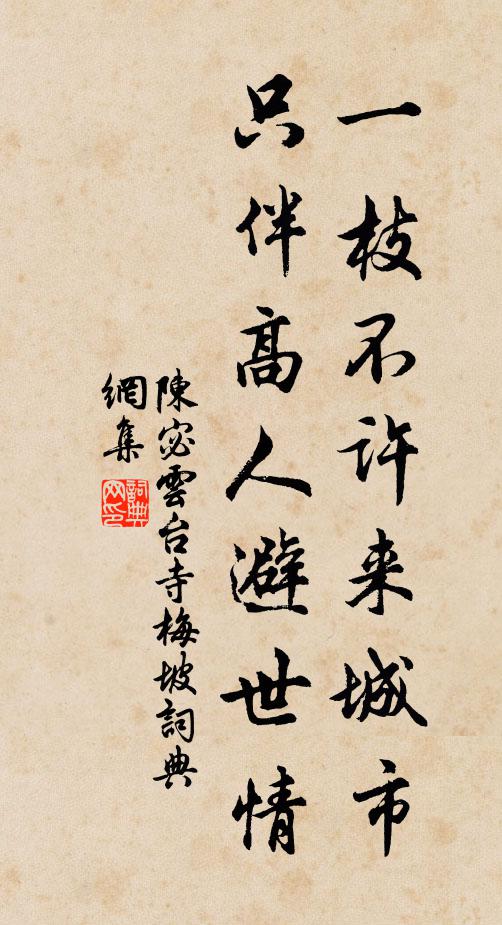 一枝不许来城市
只伴高人避世情
陳宓雲台寺梅坡詞典
網集
詞典
网印